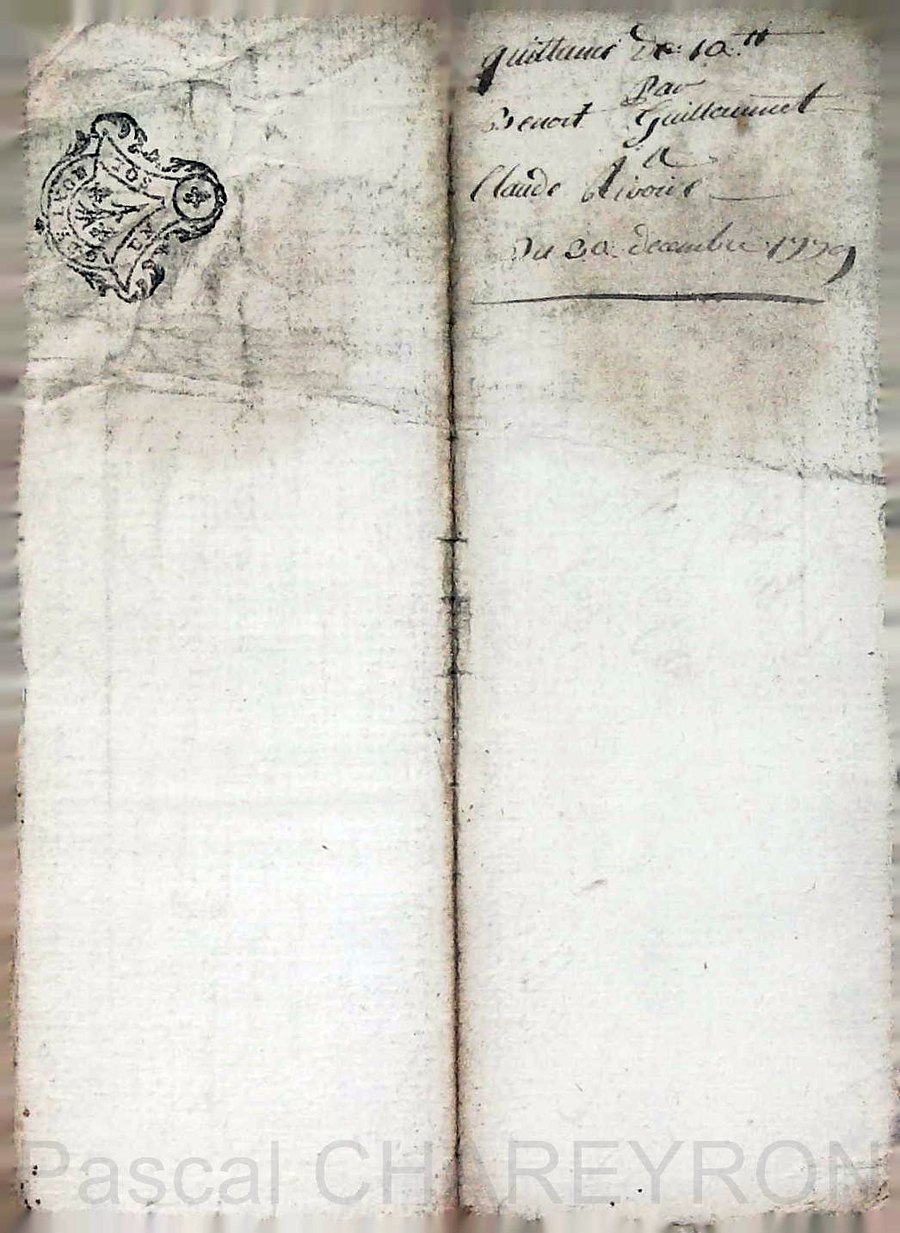 DE LYON
SOL
EN
quittance de 10 tt
Par
Benoit Guillaumet
A
Claude Rivoire
Du 30 decembre 1779
Pascal CHAREYRON